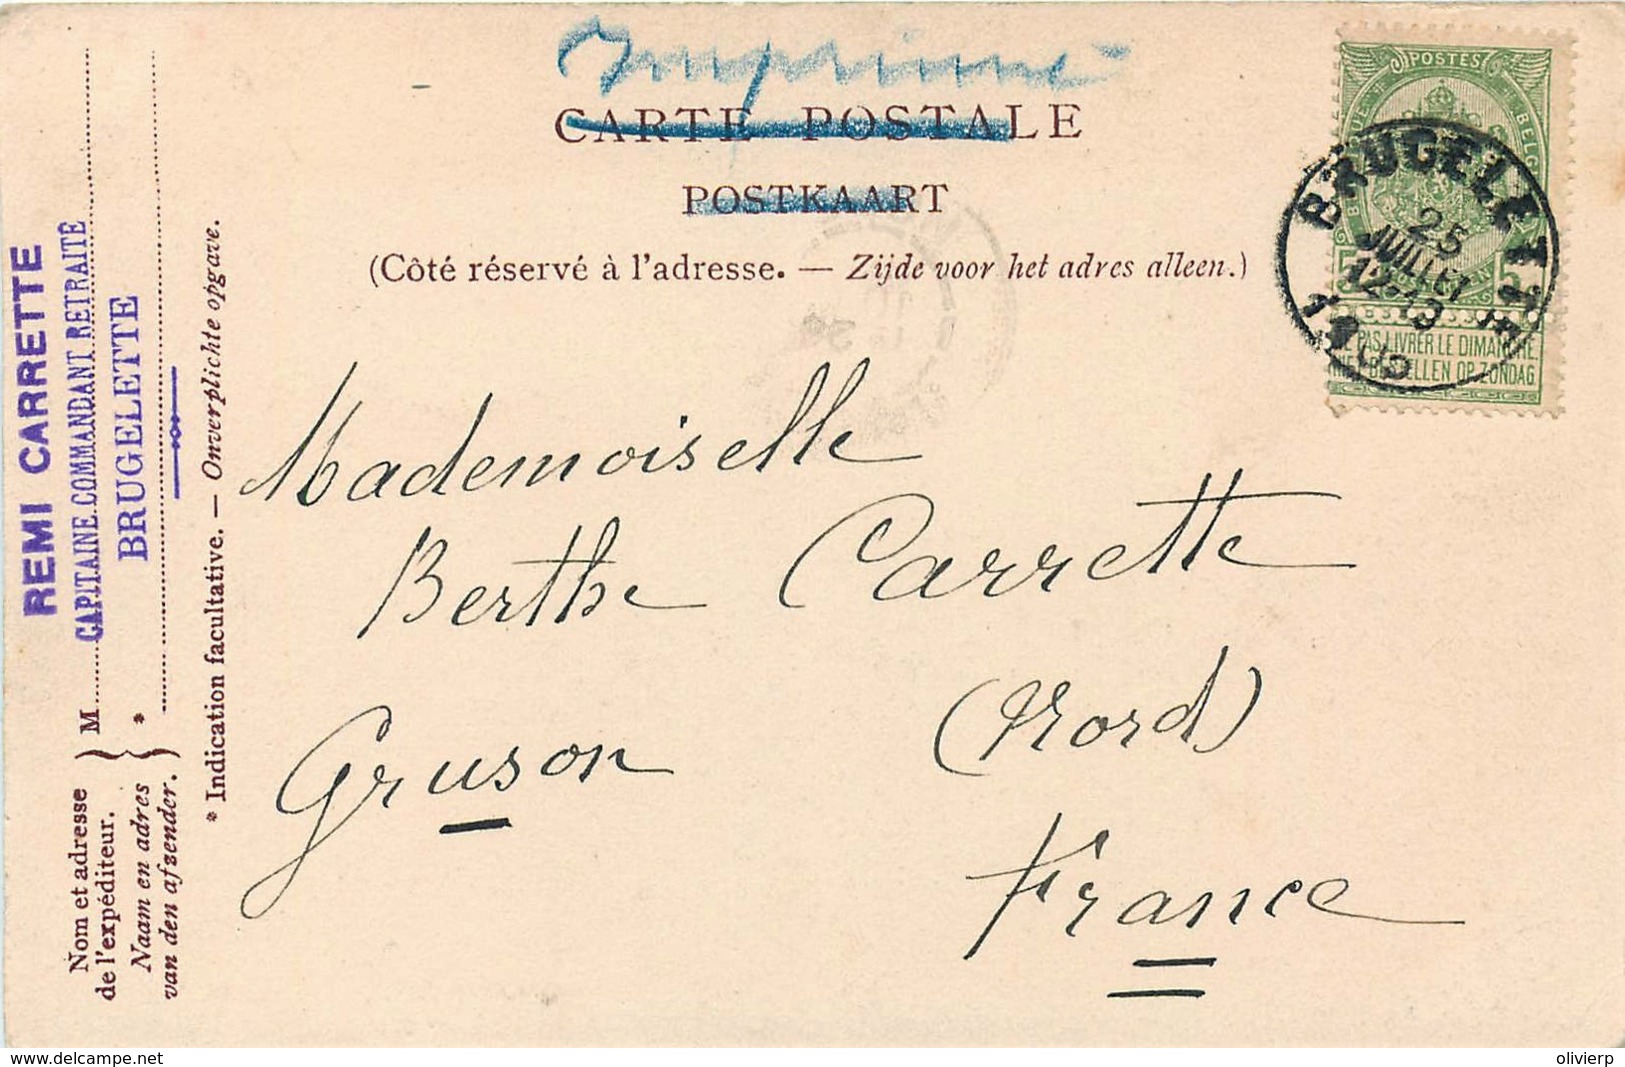 Imprimé
CARTE POSTALE
POSTKAART
(Côté réservé à l'adresse. — Zijde voor het adres alleen.)
Mademoiselle
Berthe Carrette
Gruson
(Nord)
France
REMI CARRETTE
M CAPITAINE COMMANDANT RETRAITE
BRUGELETTE
*
Nom et adresse
de l'expéditeur.
Naam en adres
van den afzender.
* Indication facultative. — Onverplichte opgave.
POSTES
BELGIQUE BELGIË
5 5
NE PAS LIVRER LE DIMANCHE
NIET BESTELLEN OP ZONDAG
BRUGELETTE
25
JUILLET
12-13
1905
delcampe.net
olivierp